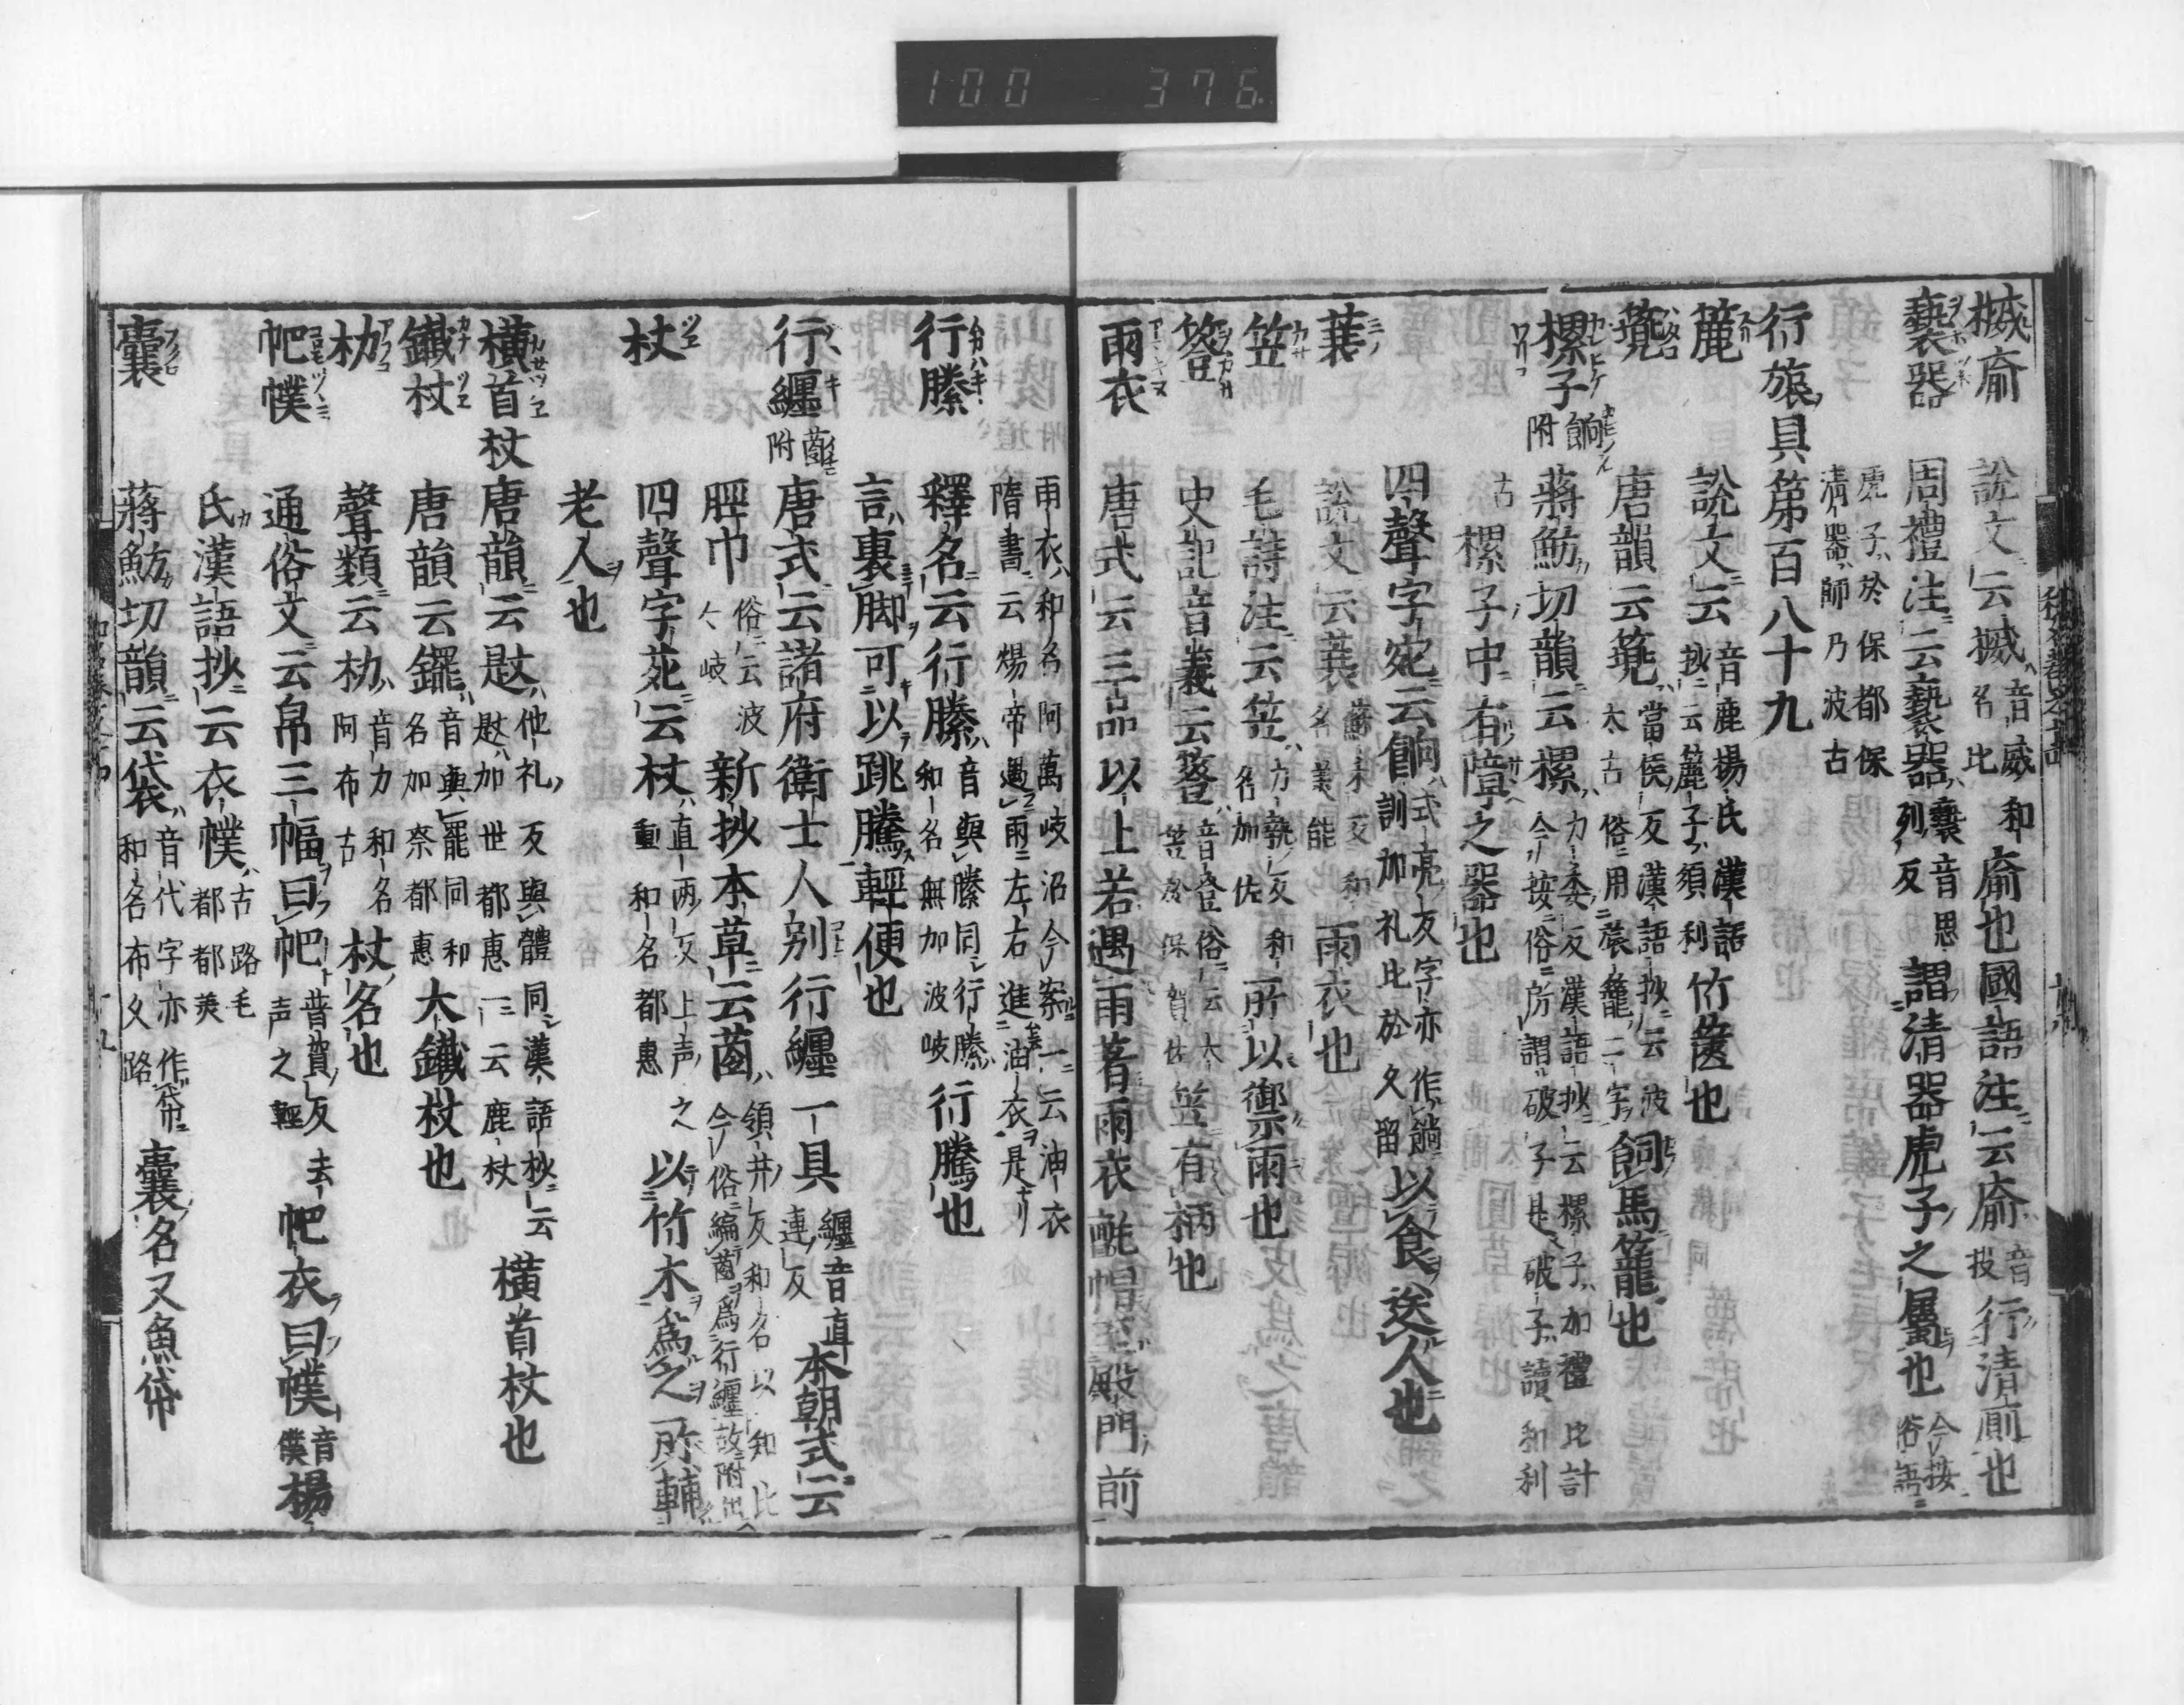 100 376
楲㢏 說文云楲音威和名比㢏也國語注云㢏音投行清廁也
褻器 周禮注云褻器褻音思列反謂清器虎子之屬也今按俗語
虎子於保都保
清器師乃波古
行旅具第百八十九
簏 說文云音鹿楊氏漢語抄云簏子須利竹篋也
篼 唐韻云篼當侯反漢語抄云波太古俗用簏籠二字飼馬籠也
樏子 餉附 蔣魴切韻云樏力委反漢語抄云樏子加禮比計今按俗所謂破子是破子讀和利
古 樏子中有障之器也
四聲字苑云餉式亮反字亦作饟訓加礼比於久留以食送人也
蓑 說文云蓑蘇禾反和名美能雨衣也
笠 毛詩注云笠力執反和名加佐所以禦雨也
簦 史記音義云簦音登俗云大笠於保賀佐笠有柄也
雨衣 唐式云三品以上若遇雨著雨衣氈帽至殿門前
雨衣和名阿萬岐沼今案一云油衣
隋書云煬帝遇雨左右進油衣是
行縢 釋名云行縢音與縢同行縢和名無加波岐行騰也
言裹脚可以跳騰輕便也
行纏 䓃附 唐式云諸府衛士人別行纏一具纏音直連反本朝式云
脛巾俗云波々岐新抄本草云䓃領井反和名以知比今俗編䓃爲行纏故附出
杖 四聲字苑云杖直両反上声之重和名都惠以竹木爲之所輔
老人也
橫首杖 唐韻云𣥺他礼反與體同漢語抄云𣥺加世都惠一云鹿杖橫首杖也
鐵杖 唐韻云䥯音與罷同和名加奈都惠大鐵杖也
朸 聲類云朸音力和名阿布古杖名也
帊幞 通俗文云帛三幅曰帊普賀反去声之輕帊衣曰幞音僕楊
氏漢語抄云衣幞古路毛都都美
囊 蔣魴切韻云袋音代字亦作帒和名布久路囊名又魚帒